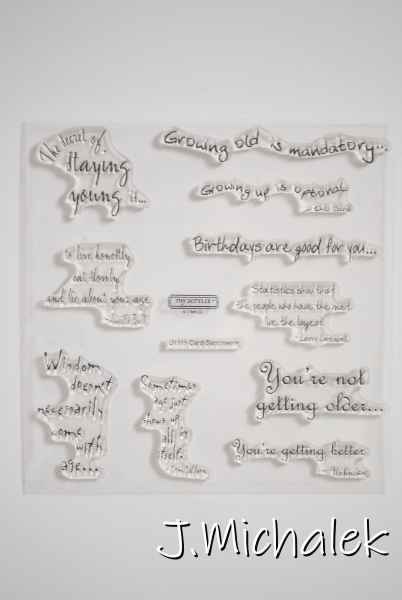 The secret of
staying
young is...
Growing old is mandatory...
Growing up is optional
Birthdays are good for you...
to live honestly
eat slowly
and lie about your age
Statistics show that
the people who have the most
live the longest
Larry Lorenzoni
Card Sentiments
Wisdom
doesn't
necessarily
come
with
age...
Sometimes
age just
shows up
all by
itself
You're not
getting older...
You're getting better
Unknown
J.Michalek